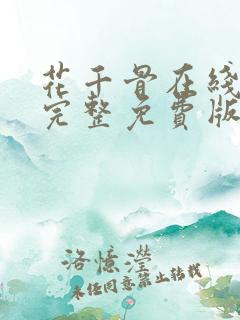 花千骨在线
完整免費版
洛憶瀅
未经同意禁止转载